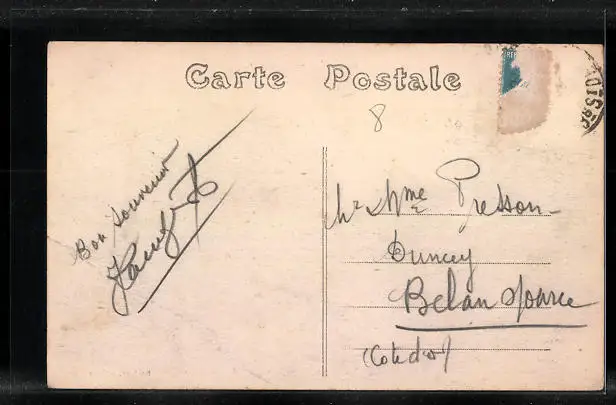 Carte Postale
8
Bon Souvenir
Mr & Mme Presson
Buncey
Belan s/ource
(Cote d'or)